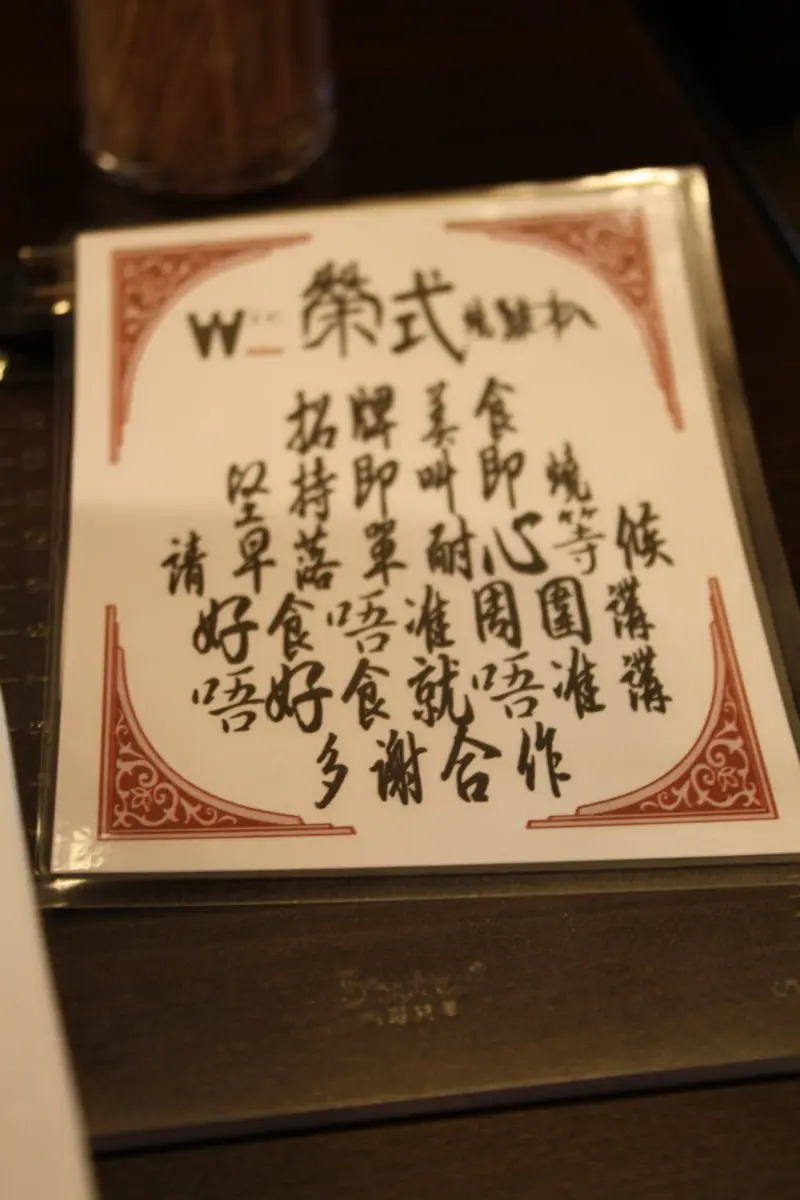 W 榮式燒雞扒
招牌美食
堅持即叫即燒
請早落單耐心等候
好食唔准周圍講
唔好食就唔准講
多謝合作